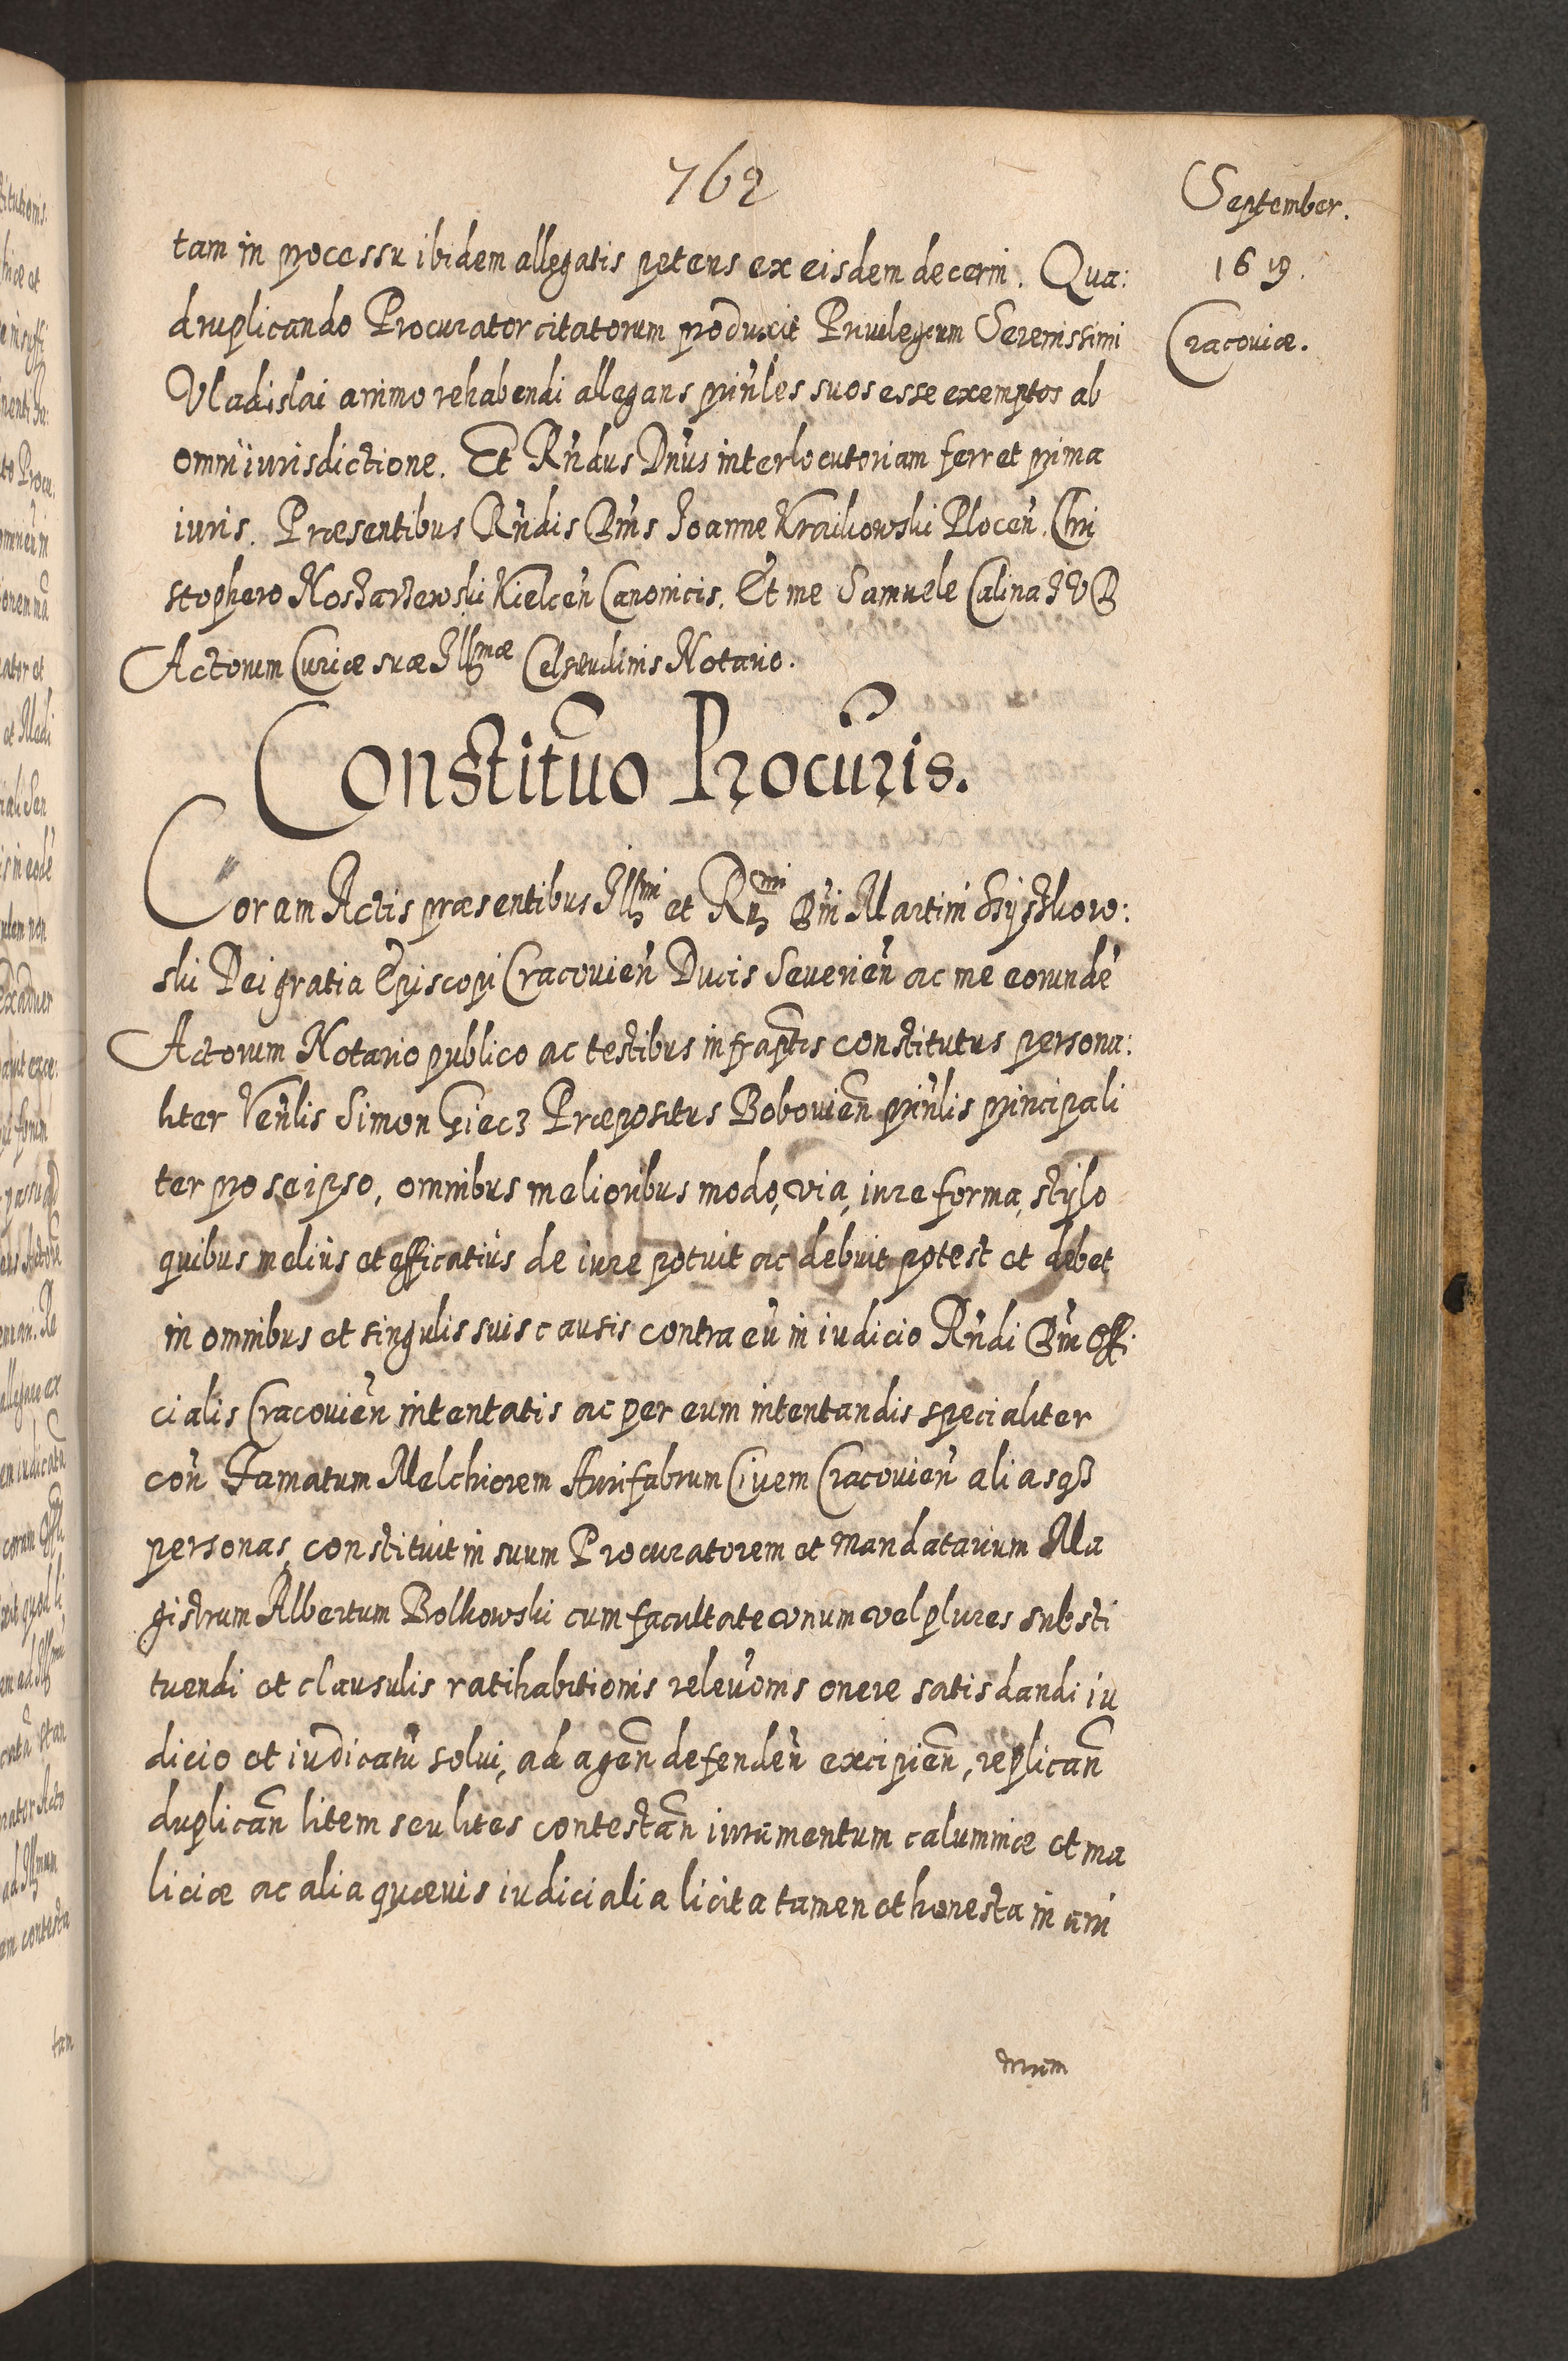 762
September.
1619.
Cracoviæ.
tam in processu ibidem allegatis petens ex eisdem decerni. Qua:
druplicando Procurator citatorum produxit Privilegium Serenissimi
Vladislai animo rehabendi allegans prin̄les suos esse exemptos ab
omni iurisdictione. Et Rn̄dus Dn̄us interlocutoriam ferret prima
iuris. Præsentibus Rn̄dis Dn̄is Joanne Kraikowski Plocen̄. Chri
stophero Kielcen̄ Canonicis. Et me Samuele Calina J V D
Actorum Curiæ suæ Illmæ Celsitudinis Notario.
Constitu͠o Procu͠ris.
Coram Actis præsentibus Illmi et Rn̄mi Dn̄i Martini Szyszkow:
ski Dei gratia Episcopi Cracovien̄ Ducis Severien̄ ac me eorundē
Actorum Notario publico ac testibus infrap̄tis constitutus persona:
liter Ven̄lis Simon Giecz Præpositus Bobovien̄ prin̄lis principali
ter pro se ipso, omnibus melioribus modo, via, iure forma, stylo
quibus meliùs et efficatiùs de iure potuit ac debuit potest et debet
in omnibus et singulis suis causis contra eū in iudicio Rn̄di Dn̄i Offi:
cialis Cracovien̄ intentatis ac per eum intentandis specialiter
con̄ Famatum Melchiorem Aurifabrum Civem Cracovien̄ aliasqꝫ
personas, constituit in suum Procuratorem et mandatarium Ma
gistrum Albertum Bolkowski cum facultate unum vel plures substi
tuendi et clausulis ratihabitionis relev̄onis onere satisdandi iu
dicio et iudicatū solvi, ad agen̄ defenden̄ excipien̄, replican̄
duplican̄ litem seu lites contestan̄ iuramentum calumniæ et ma
liciæ ac alia quævis iudicialia licita tamen et honesta in ani
mum